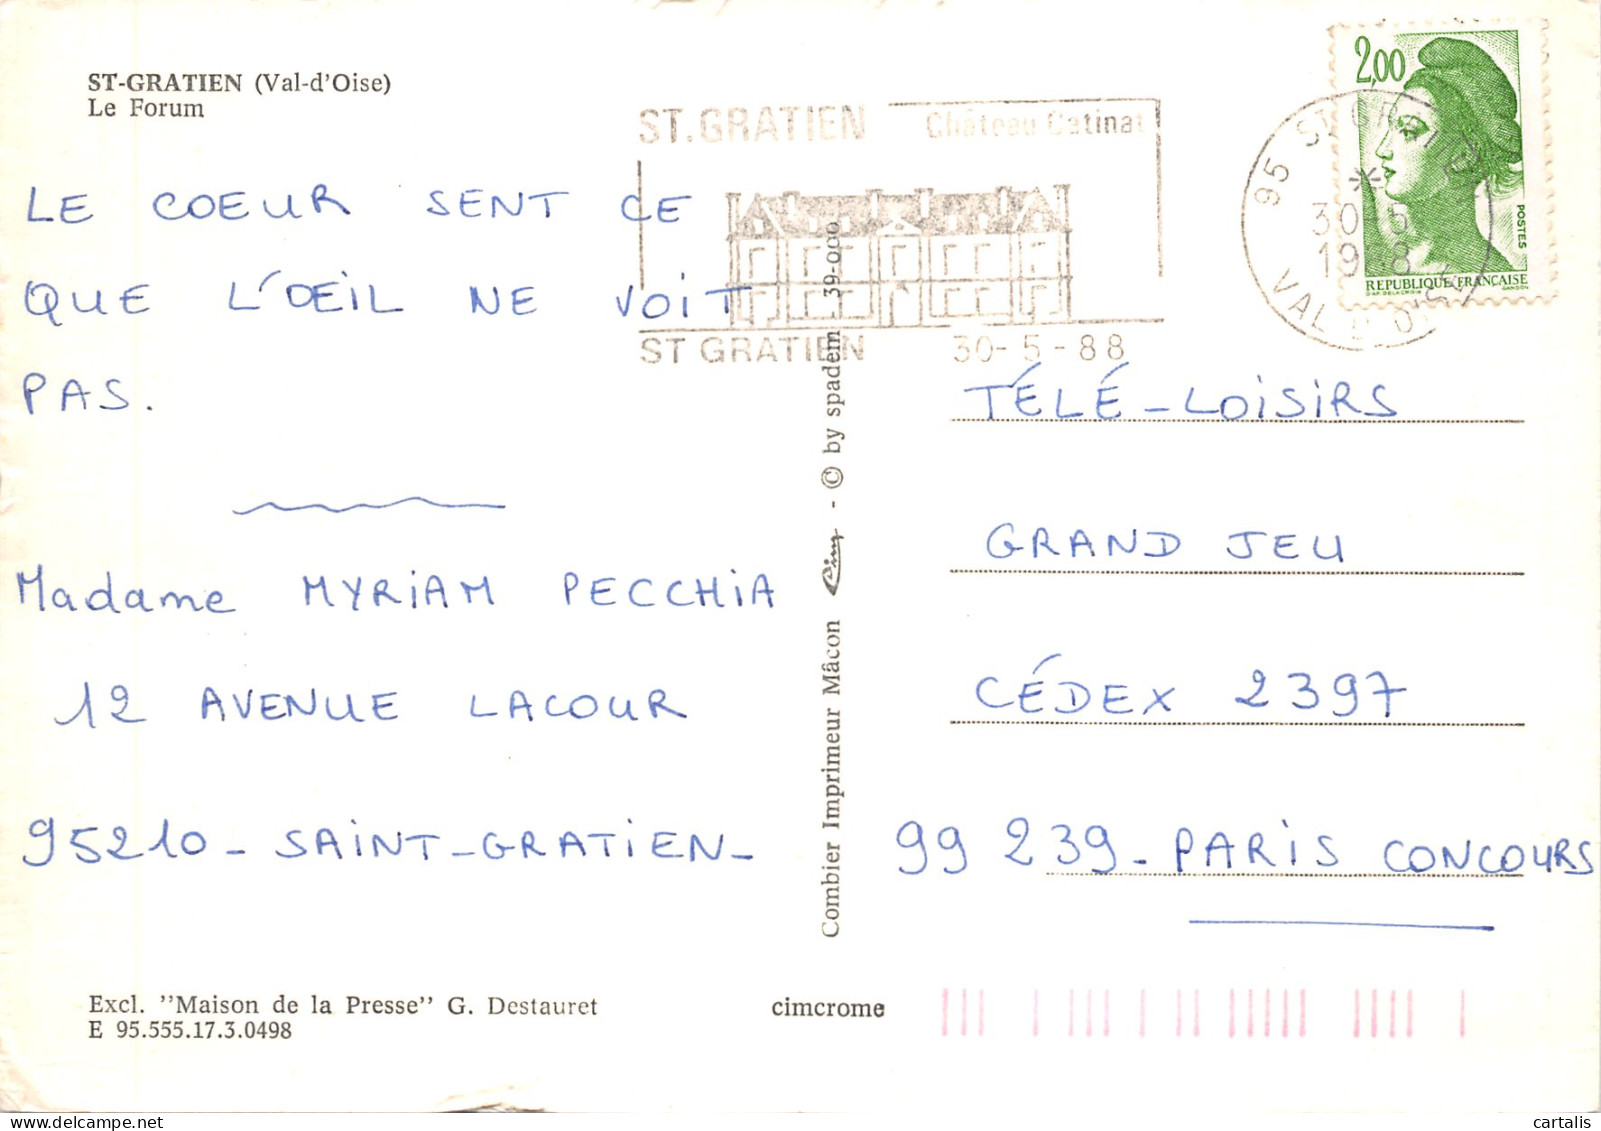 ST-GRATIEN (Val-d'Oise)
Le Forum
LE COEUR SENT CE
QUE L'OEIL NE VOIT
PAS.
Madame MYRIAM PECCHIA
12 AVENUE LACOUR
95210 - SAINT-GRATIEN -
Excl. ''Maison de la Presse'' G. Destauret
E 95.555.17.3.0498
cimcrome
Combier Imprimeur Mâcon Cim - © by spadem 39-000
ST. GRATIEN Château Catinat
ST GRATIEN 30-5-88
95 ST GRATIEN
30 5
1988
VAL D'OISE
2,00
POSTES
REPUBLIQUE FRANÇAISE
D'AP. DELACROIX GANDON
TÉLÉ-LOISIRS
GRAND JEU
CÉDEX 2397
99 239 - PARIS CONCOURS
cartalis